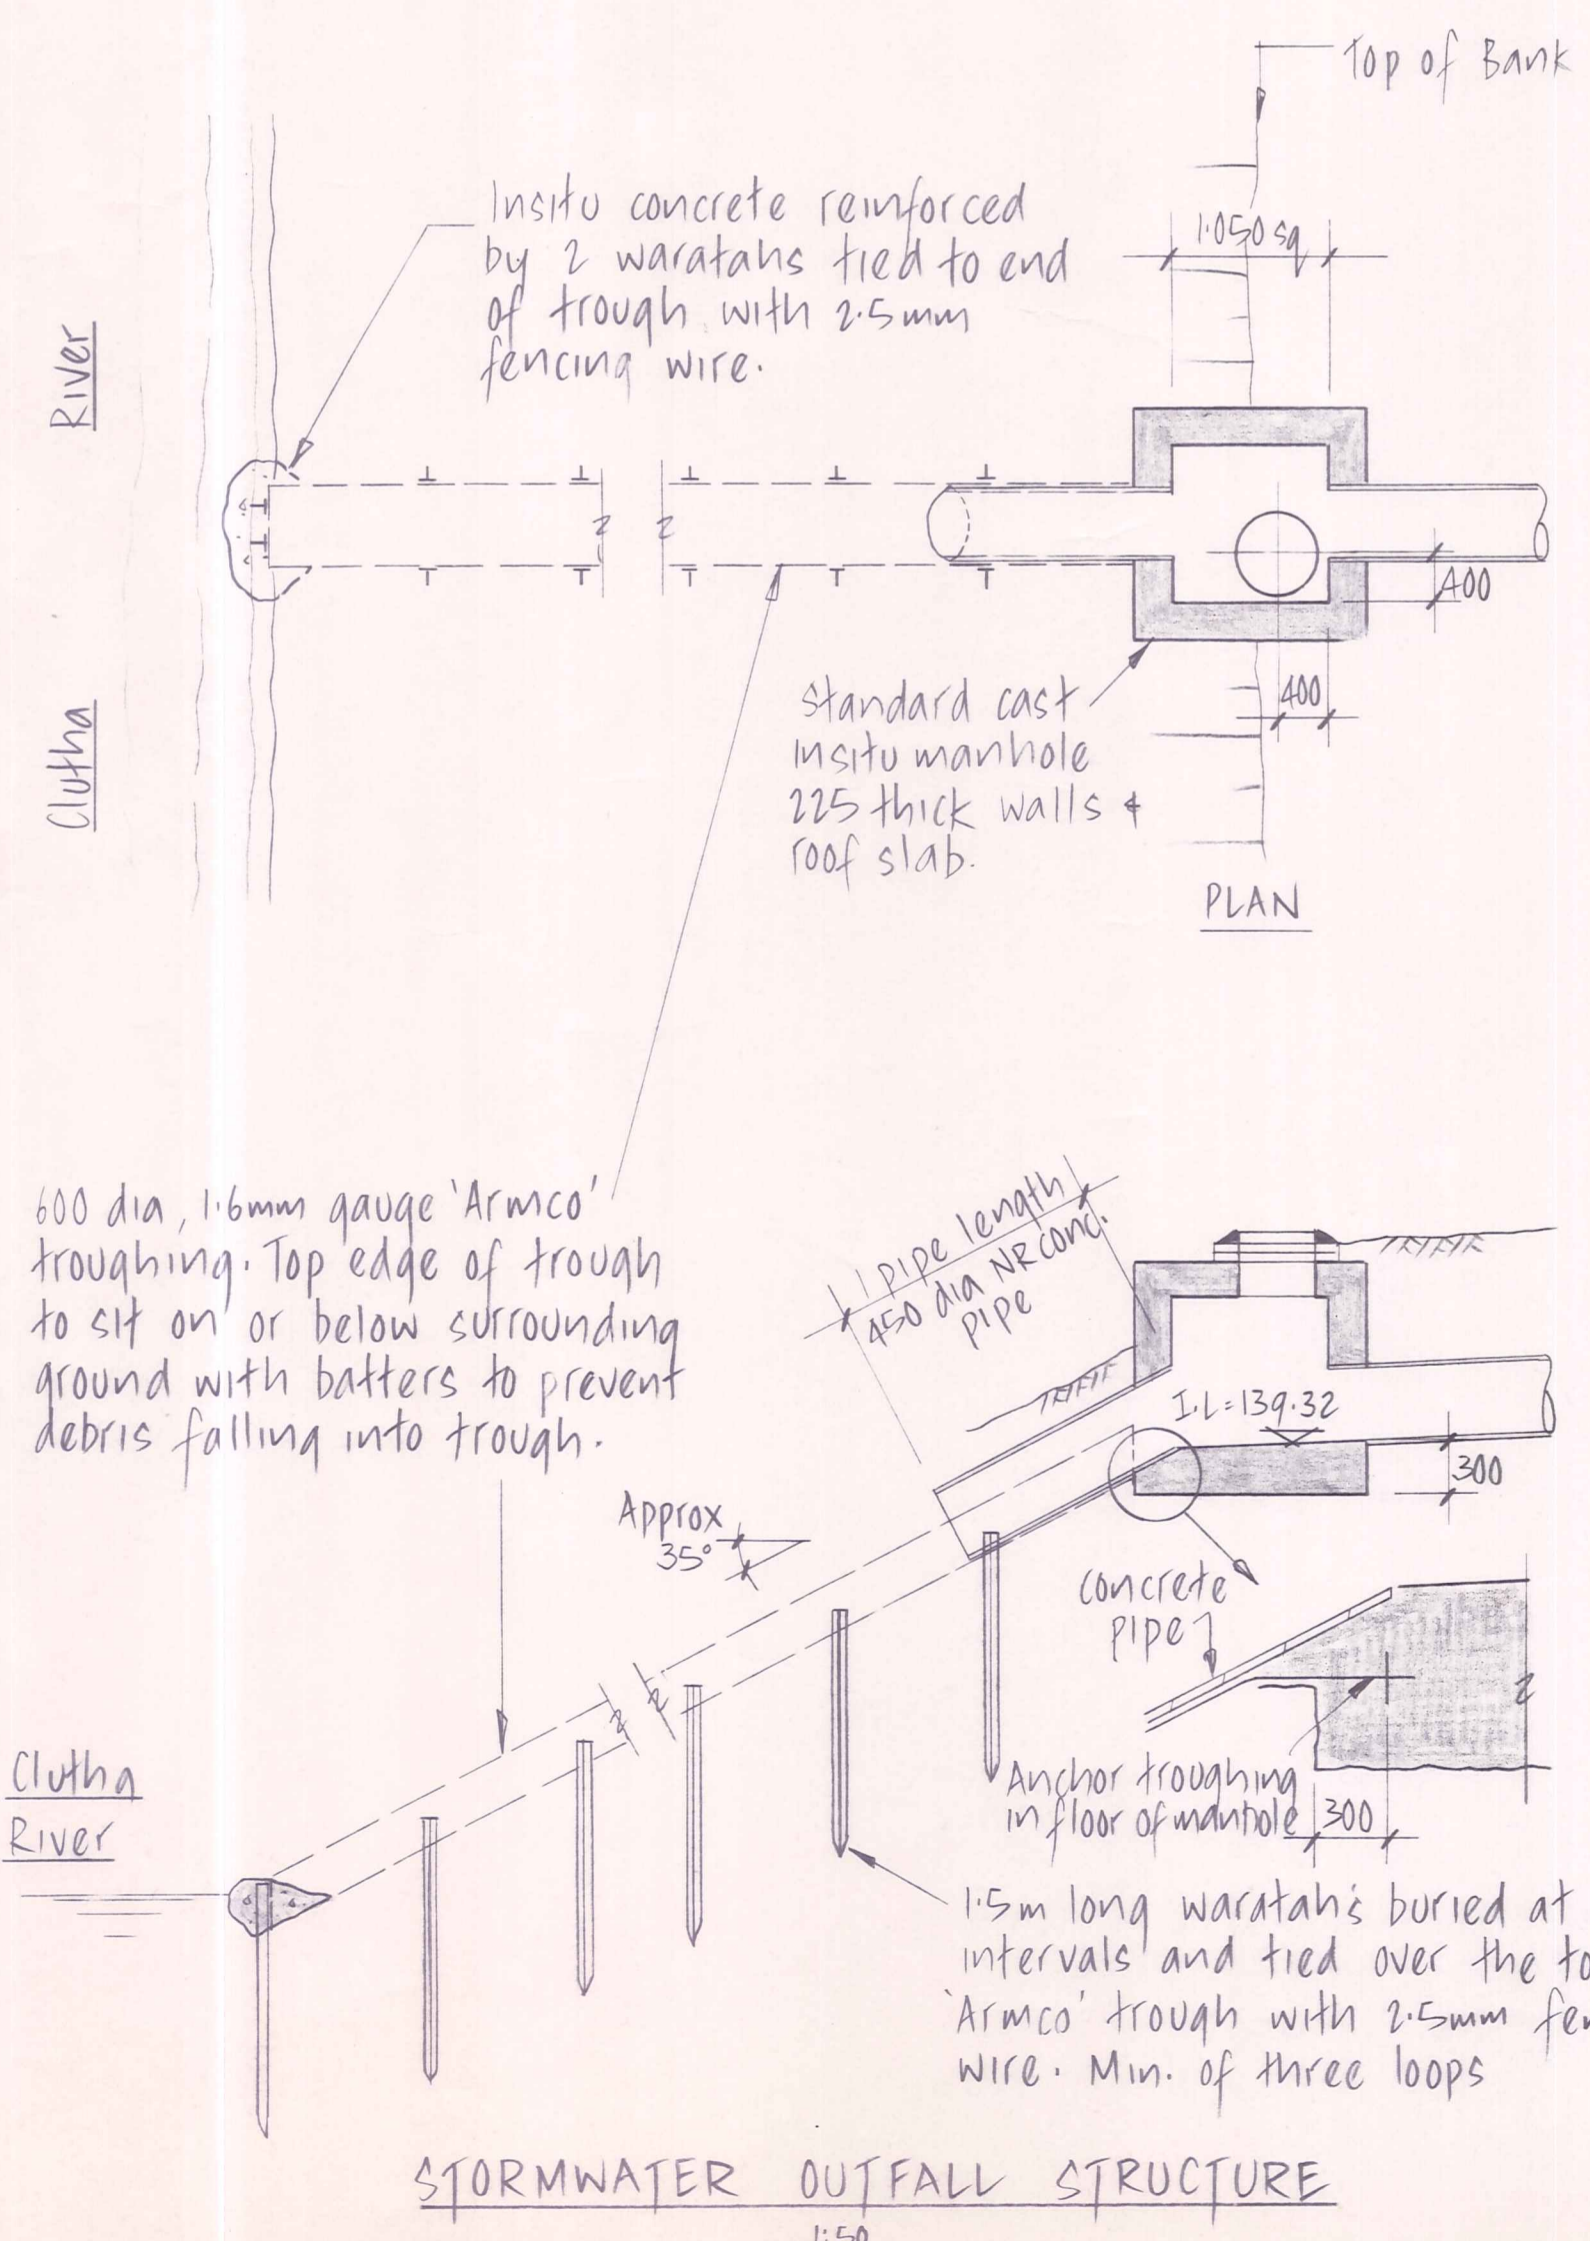 Top of Bank
Insitu concrete reinforced
by 2 waratahs tied to end
of trough with 2.5mm
fencing wire.
1.050 sq
River
Clutha
400
400
Standard cast
insitu manhole
225 thick walls &
roof slab.
PLAN
600 dia, 1.6mm gauge 'Armco'
troughing. Top edge of trough
to sit on or below surrounding
ground with batters to prevent
debris falling into trough.
1 pipe length
450 dia NR conc.
pipe
I.L=139.32
300
Approx
35°
concrete
pipe
Anchor troughing
in floor of manhole
300
Clutha
River
1.5m long waratah's buried at
intervals and tied over the
'Armco' trough with 2.5mm
wire. Min. of three loops
STORMWATER OUTFALL STRUCTURE
1:50